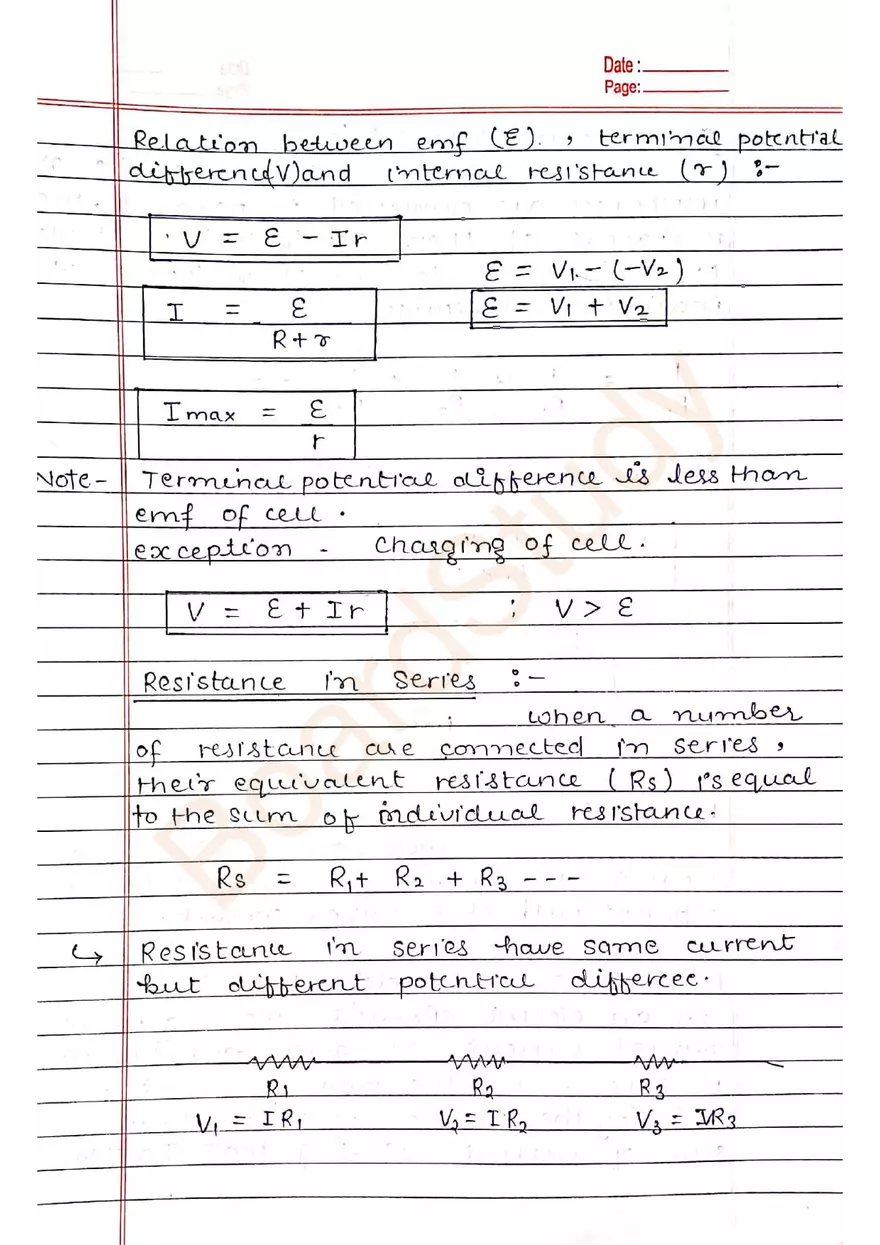 Date :
Page:
Relation between emf (ℰ). , terminal potential
differenc(V)and internal resistance (r) :-
V = ℰ - Ir
ℰ = V1 - (-V2)
I = ℰ
R + r
ℰ = V1 + V2
Imax = ℰ
r
Note - Terminal potential difference is less than
emf of cell .
exception - Charging of cell .
V = ℰ + Ir ; V > ℰ
Resistance in series :-
when a number
of resistance are connected in series ,
their equivalent resistance ( Rs ) is equal
to the sum of individual resistance .
Rs = R1 + R2 + R3 - - -
↳ Resistance in series have same current
but different potential differcee .
R1 R2 R3
V1 = IR1 V2 = IR2 V3 = IR3
BoardStudy